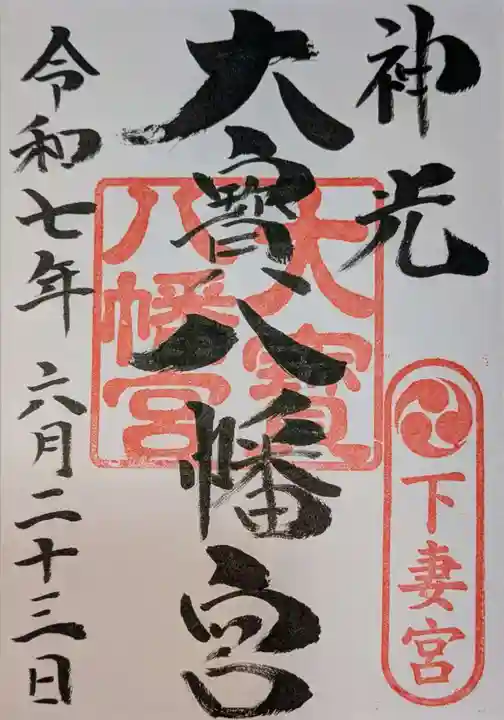 神光
下妻宮
大寳八幡宮
大寳
八幡宮
令和七年 六月二十三日